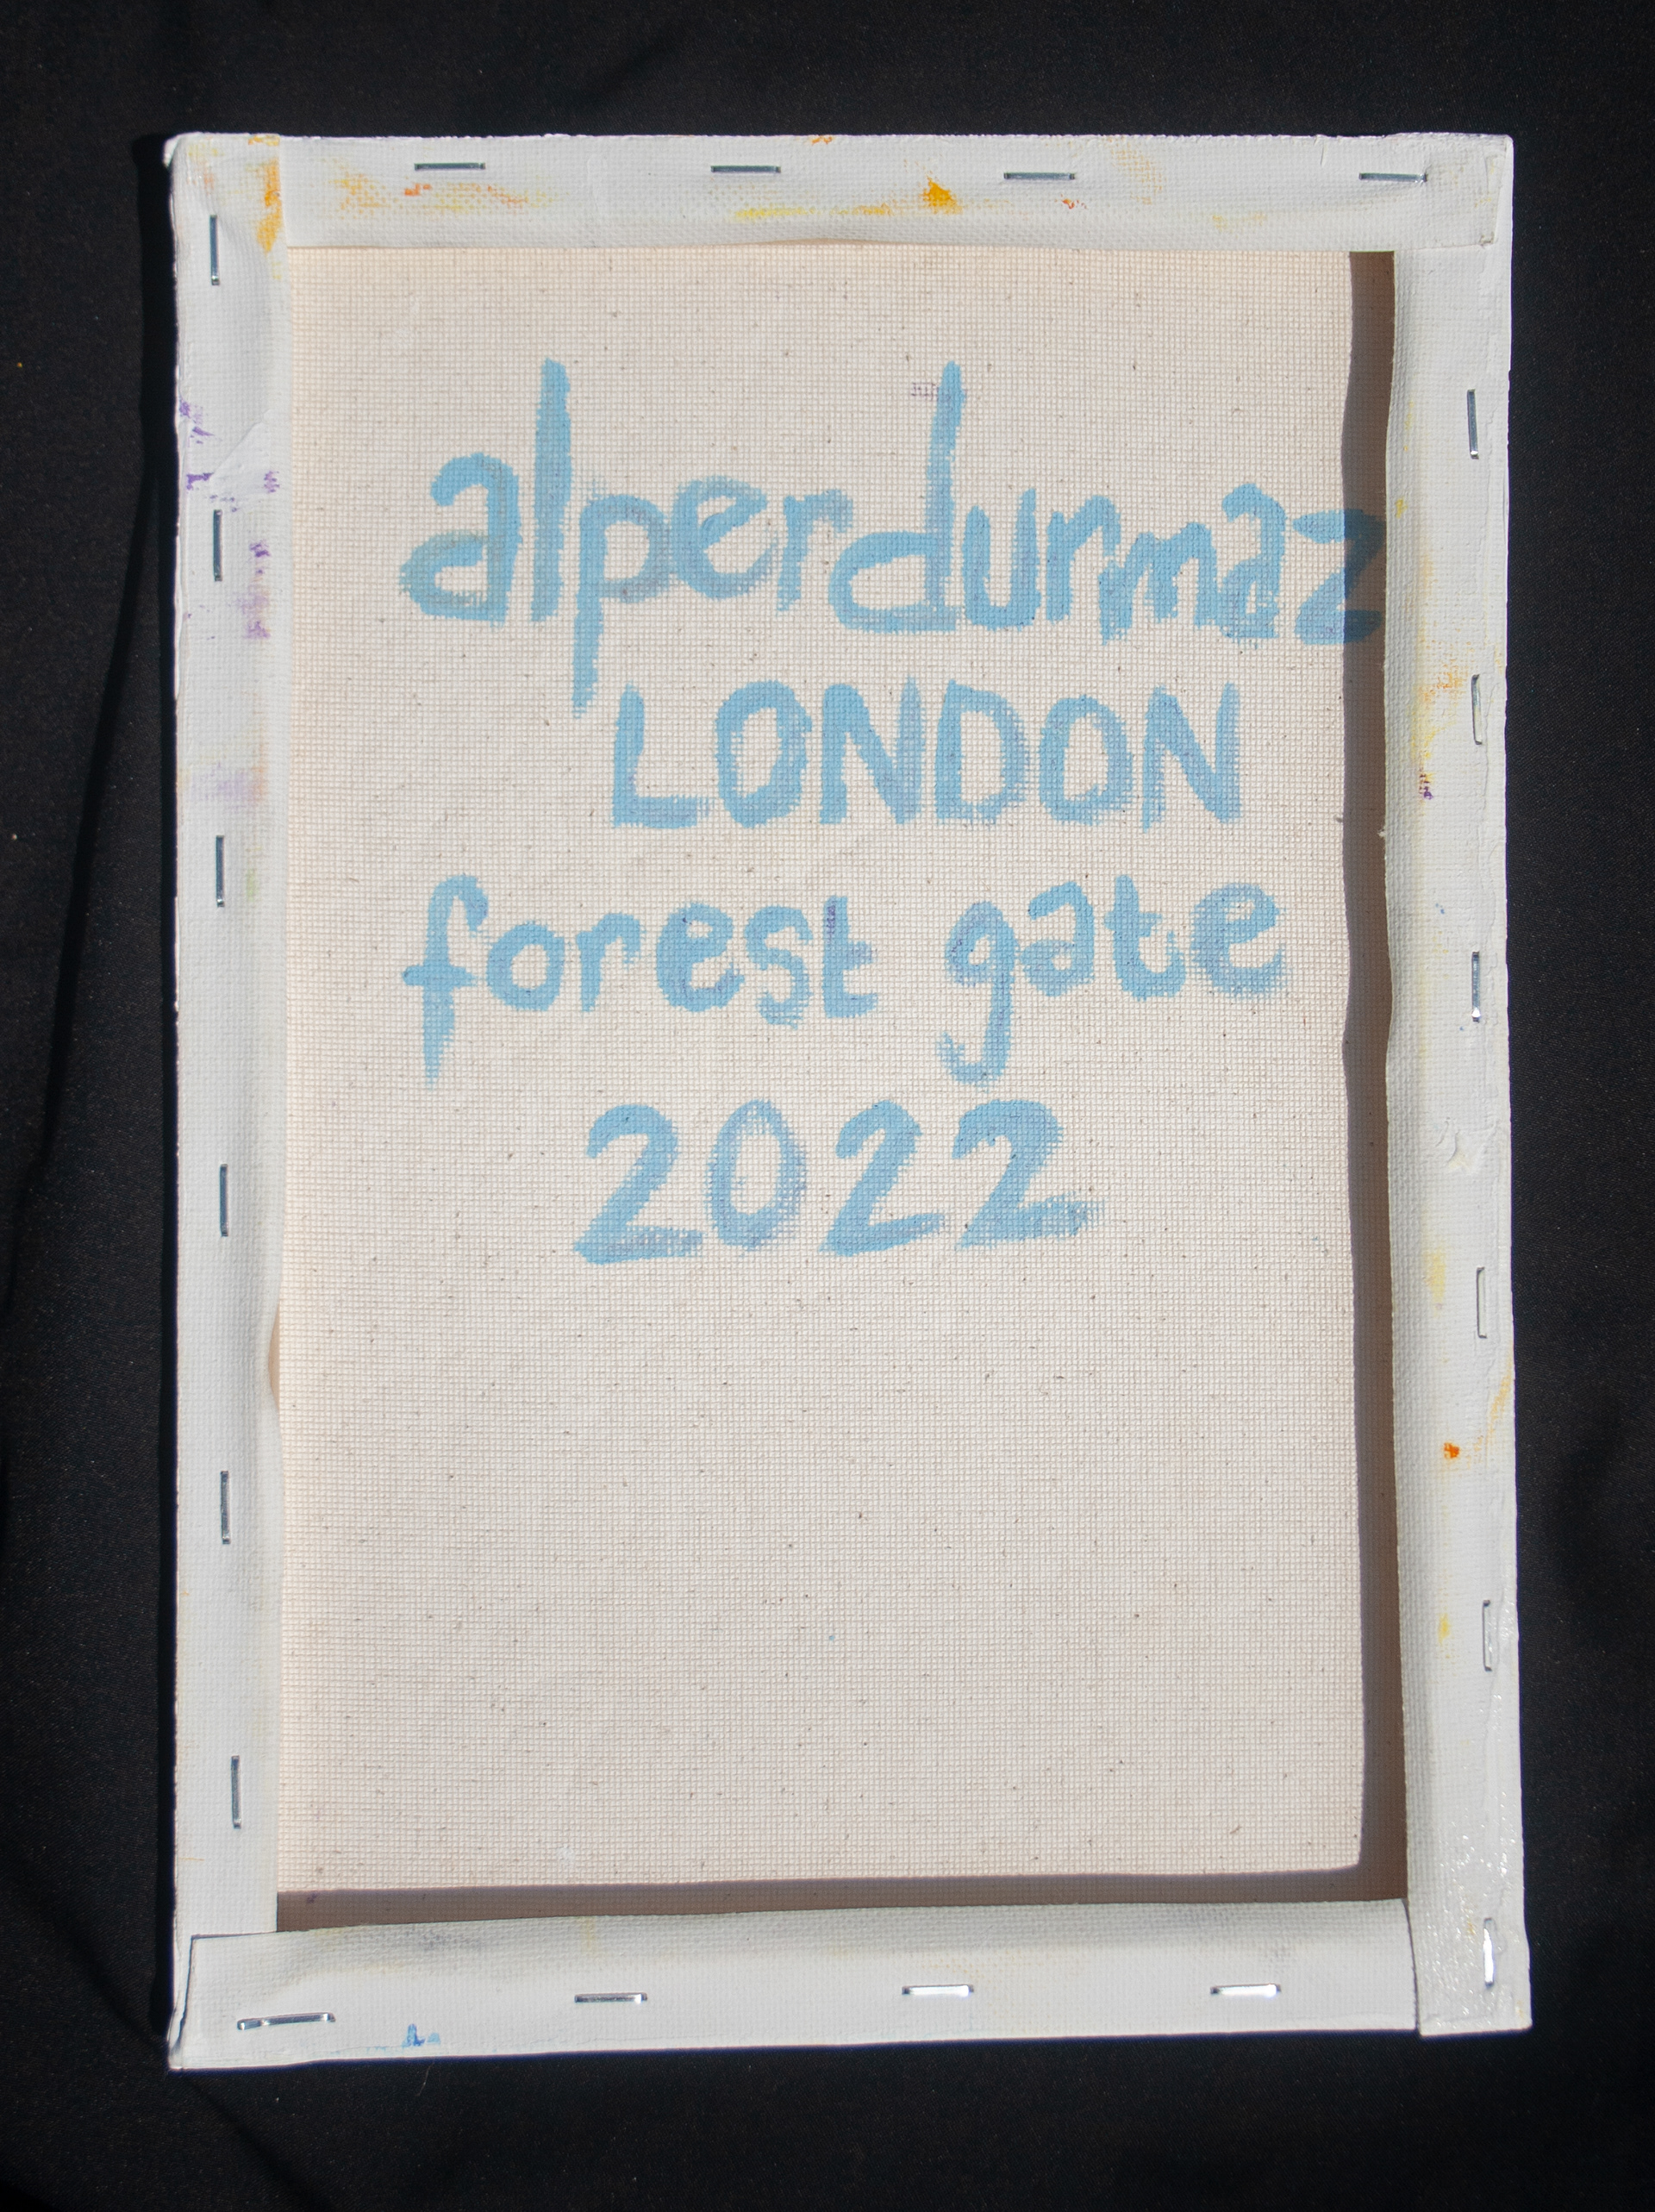 alperdurmaz
LONDON
forest gate
2022